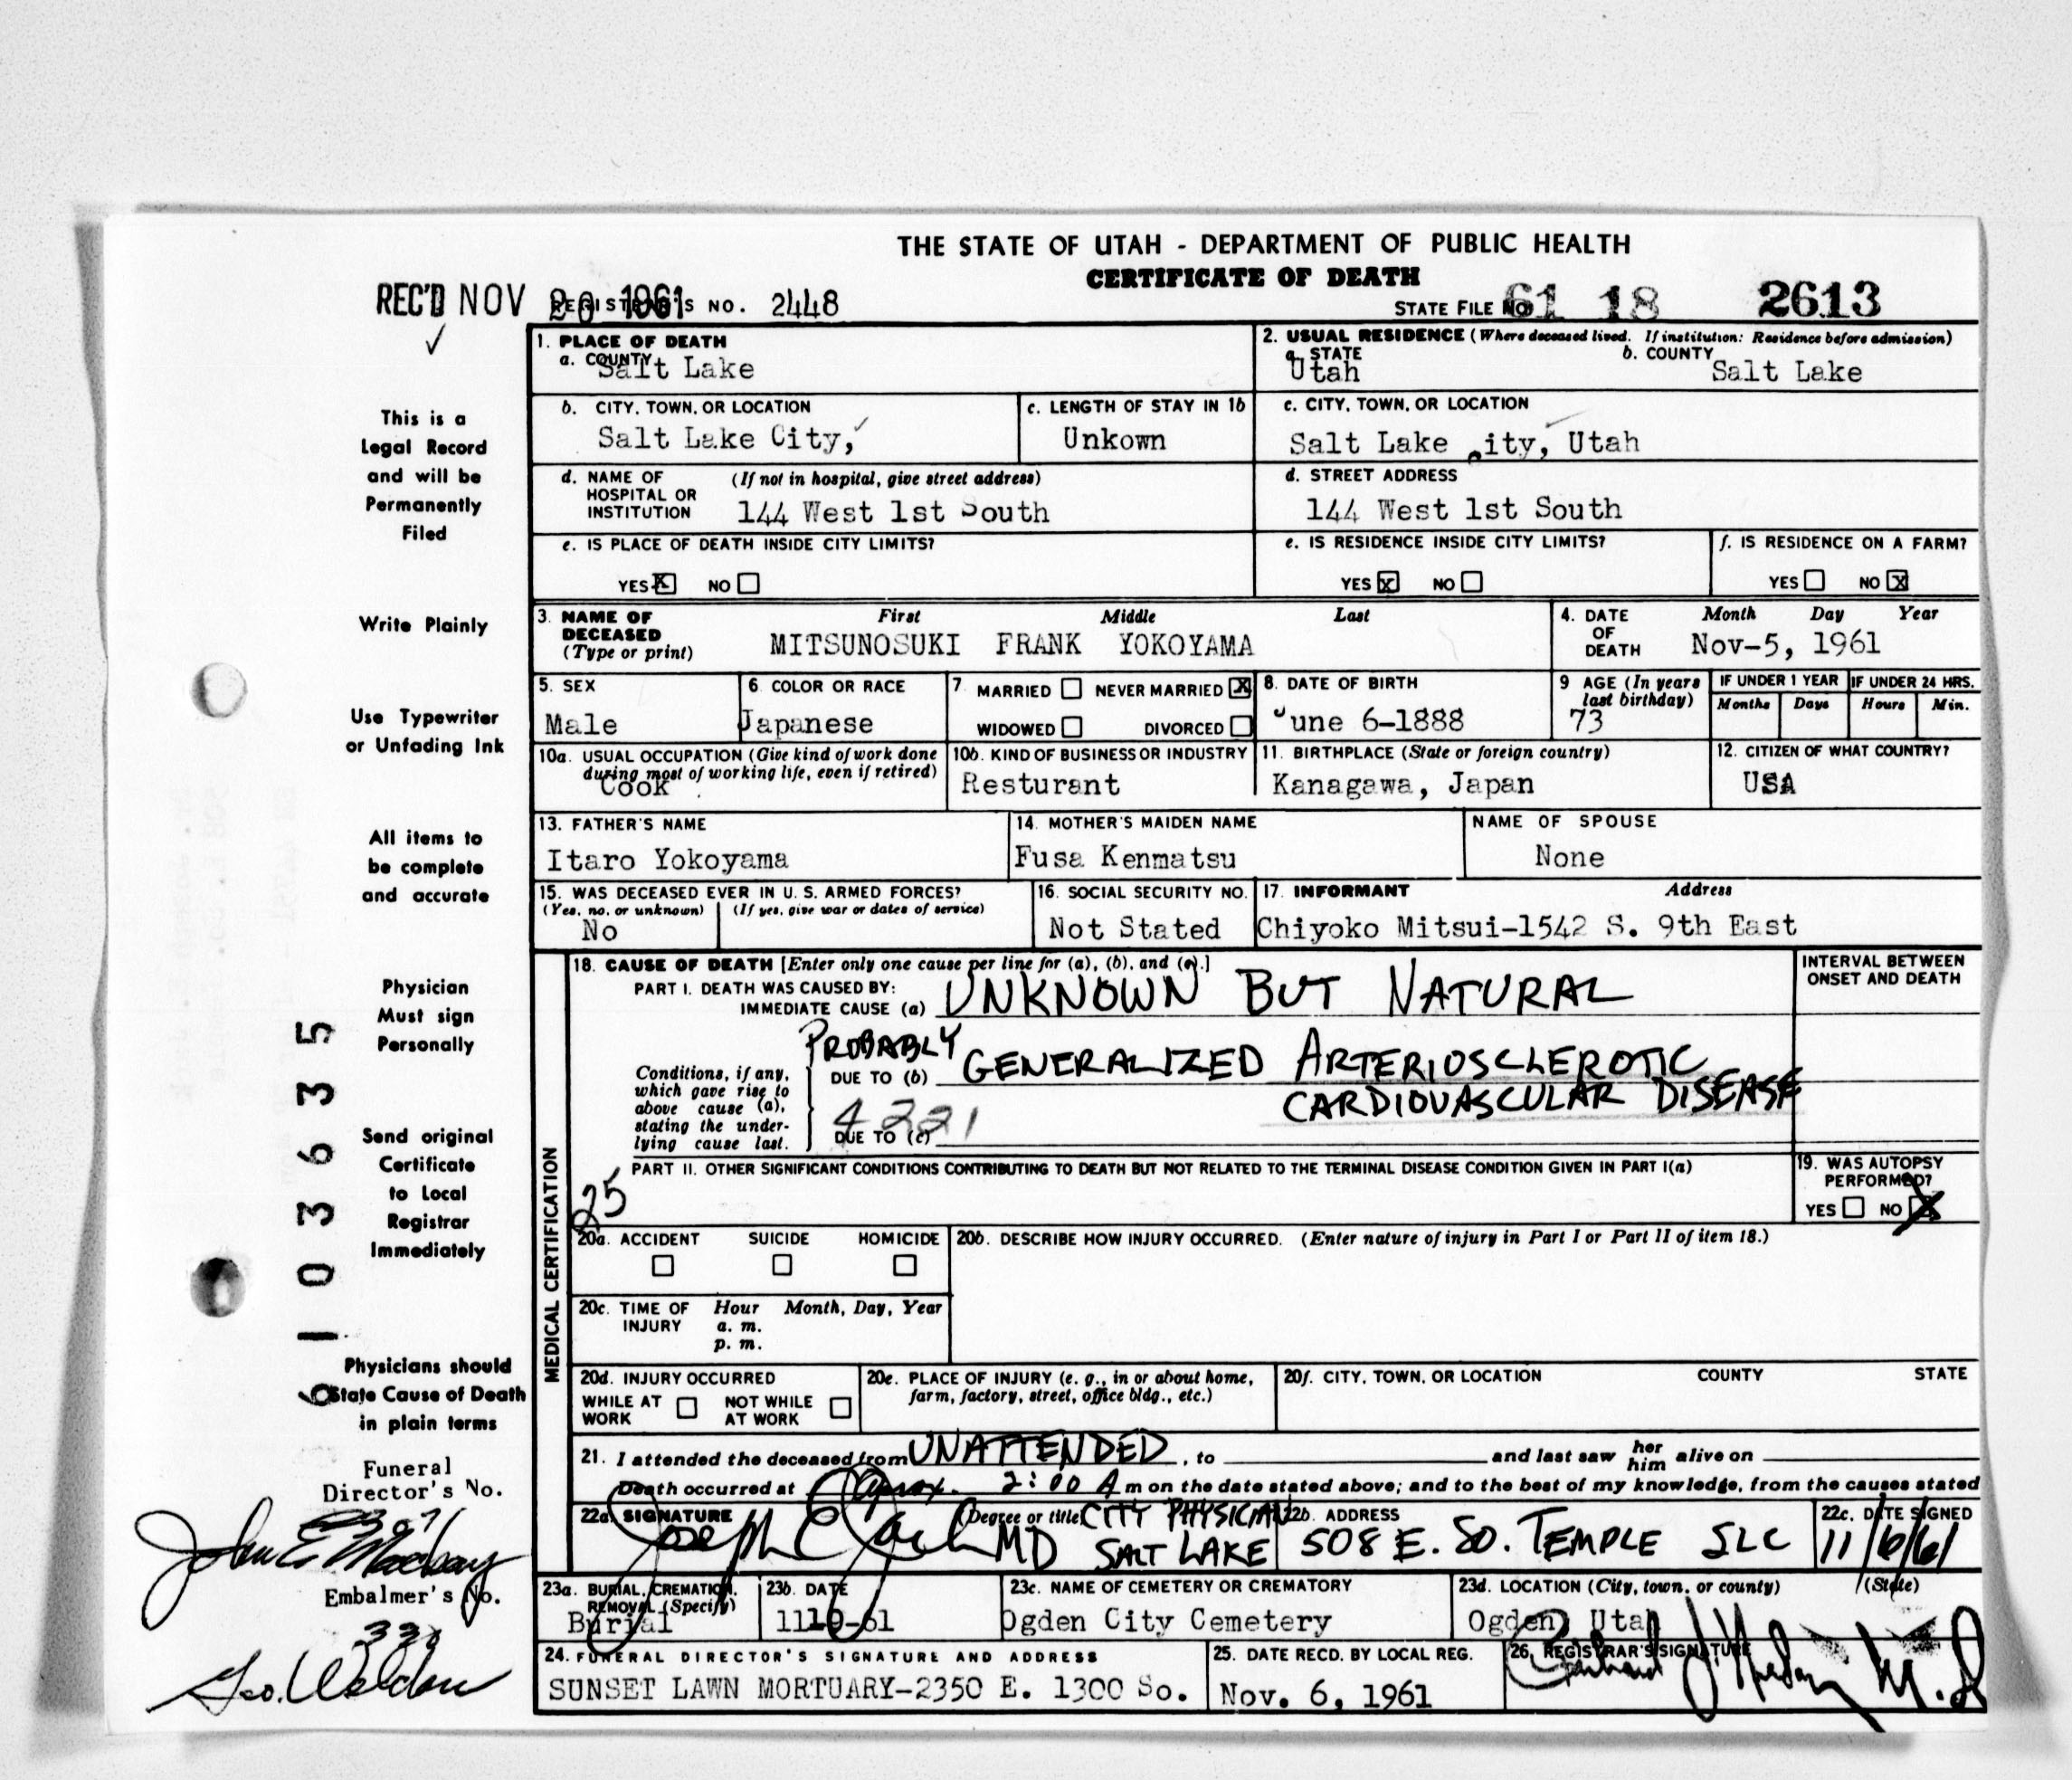 THE STATE OF UTAH - DEPARTMENT OF PUBLIC HEALTH
CERTIFICATE OF DEATH
REC'D NOV 20 1961 REGISTRAR'S NO. 2448 STATE FILE NO. 61 18 2613
1. PLACE OF DEATH
a. COUNTY Salt Lake
2. USUAL RESIDENCE (Where deceased lived. If institution: Residence before admission)
a. STATE Utah b. COUNTY Salt Lake
b. CITY, TOWN, OR LOCATION Salt Lake City,
c. LENGTH OF STAY IN 1b Unkown
c. CITY, TOWN, OR LOCATION Salt Lake City, Utah
d. NAME OF HOSPITAL OR INSTITUTION (If not in hospital, give street address) 144 West 1st South
d. STREET ADDRESS 144 West 1st South
e. IS PLACE OF DEATH INSIDE CITY LIMITS? YES X NO
e. IS RESIDENCE INSIDE CITY LIMITS? YES X NO
f. IS RESIDENCE ON A FARM? YES NO X
3. NAME OF DECEASED (Type or print) First Middle Last
MITSUNOSUKI FRANK YOKOYAMA
4. DATE OF DEATH Month Day Year
Nov-5, 1961
5. SEX Male
6. COLOR OR RACE Japanese
7. MARRIED NEVER MARRIED X
WIDOWED DIVORCED
8. DATE OF BIRTH June 6-1888
9 AGE (In years last birthday) 73
IF UNDER 1 YEAR Months Days
IF UNDER 24 HRS. Hours Min.
10a. USUAL OCCUPATION (Give kind of work done during most of working life, even if retired) Cook
10b. KIND OF BUSINESS OR INDUSTRY Resturant
11. BIRTHPLACE (State or foreign country) Kanagawa, Japan
12. CITIZEN OF WHAT COUNTRY? USA
13. FATHER'S NAME Itaro Yokoyama
14. MOTHER'S MAIDEN NAME Fusa Kenmatsu
NAME OF SPOUSE None
15. WAS DECEASED EVER IN U. S. ARMED FORCES?
(Yes, no, or unknown) (If yes, give war or dates of service)
No
16. SOCIAL SECURITY NO. Not Stated
17. INFORMANT Address
Chiyoko Mitsui-1542 S. 9th East
MEDICAL CERTIFICATION
18. CAUSE OF DEATH [Enter only one cause per line for (a), (b), and (c).]
PART I. DEATH WAS CAUSED BY:
IMMEDIATE CAUSE (a) UNKNOWN BUT NATURAL
INTERVAL BETWEEN ONSET AND DEATH
Conditions, if any, which gave rise to above cause (a), stating the underlying cause last.
PROBABLY
DUE TO (b) GENERALIZED ARTERIOSCLEROTIC
CARDIOVASCULAR DISEASE
4221
DUE TO (c)
PART II. OTHER SIGNIFICANT CONDITIONS CONTRIBUTING TO DEATH BUT NOT RELATED TO THE TERMINAL DISEASE CONDITION GIVEN IN PART I(a)
25
19. WAS AUTOPSY PERFORMED? YES NO X
20a. ACCIDENT SUICIDE HOMICIDE
20b. DESCRIBE HOW INJURY OCCURRED. (Enter nature of injury in Part I or Part II of item 18.)
20c. TIME OF INJURY Hour Month, Day, Year
a. m.
p. m.
20d. INJURY OCCURRED
WHILE AT WORK NOT WHILE AT WORK
20e. PLACE OF INJURY (e. g., in or about home, farm, factory, street, office bldg., etc.)
20f. CITY, TOWN, OR LOCATION COUNTY STATE
21. I attended the deceased from UNATTENDED, to and last saw her him alive on
Death occurred at Aprox. 2:00 A m on the date stated above; and to the best of my knowledge, from the causes stated
22a. SIGNATURE (Degree or title) 22b. ADDRESS 22c. DATE SIGNED
Joseph MD CITY PHYSICIAN SALT LAKE 508 E. SO. TEMPLE SLC 11/6/61
23a. BURIAL, CREMATION, REMOVAL (Specify) Burial
23b. DATE 11-10-61
23c. NAME OF CEMETERY OR CREMATORY Ogden City Cemetery
23d. LOCATION (City, town, or county) (State) Ogden Utah
24. FUNERAL DIRECTOR'S SIGNATURE AND ADDRESS
SUNSET LAWN MORTUARY-2350 E. 1300 So.
25. DATE RECD. BY LOCAL REG. Nov. 6, 1961
26. REGISTRAR'S SIGNATURE
This is a
Legal Record
and will be
Permanently
Filed
Write Plainly
Use Typewriter
or Unfading Ink
All items to
be complete
and accurate
Physician
Must sign
Personally
Send original
Certificate
to Local
Registrar
Immediately
Physicians should
State Cause of Death
in plain terms
6 1 0 3 6 3 5
Funeral
Director's No.
John E
Embalmer's No.
339
Geo. Weldon